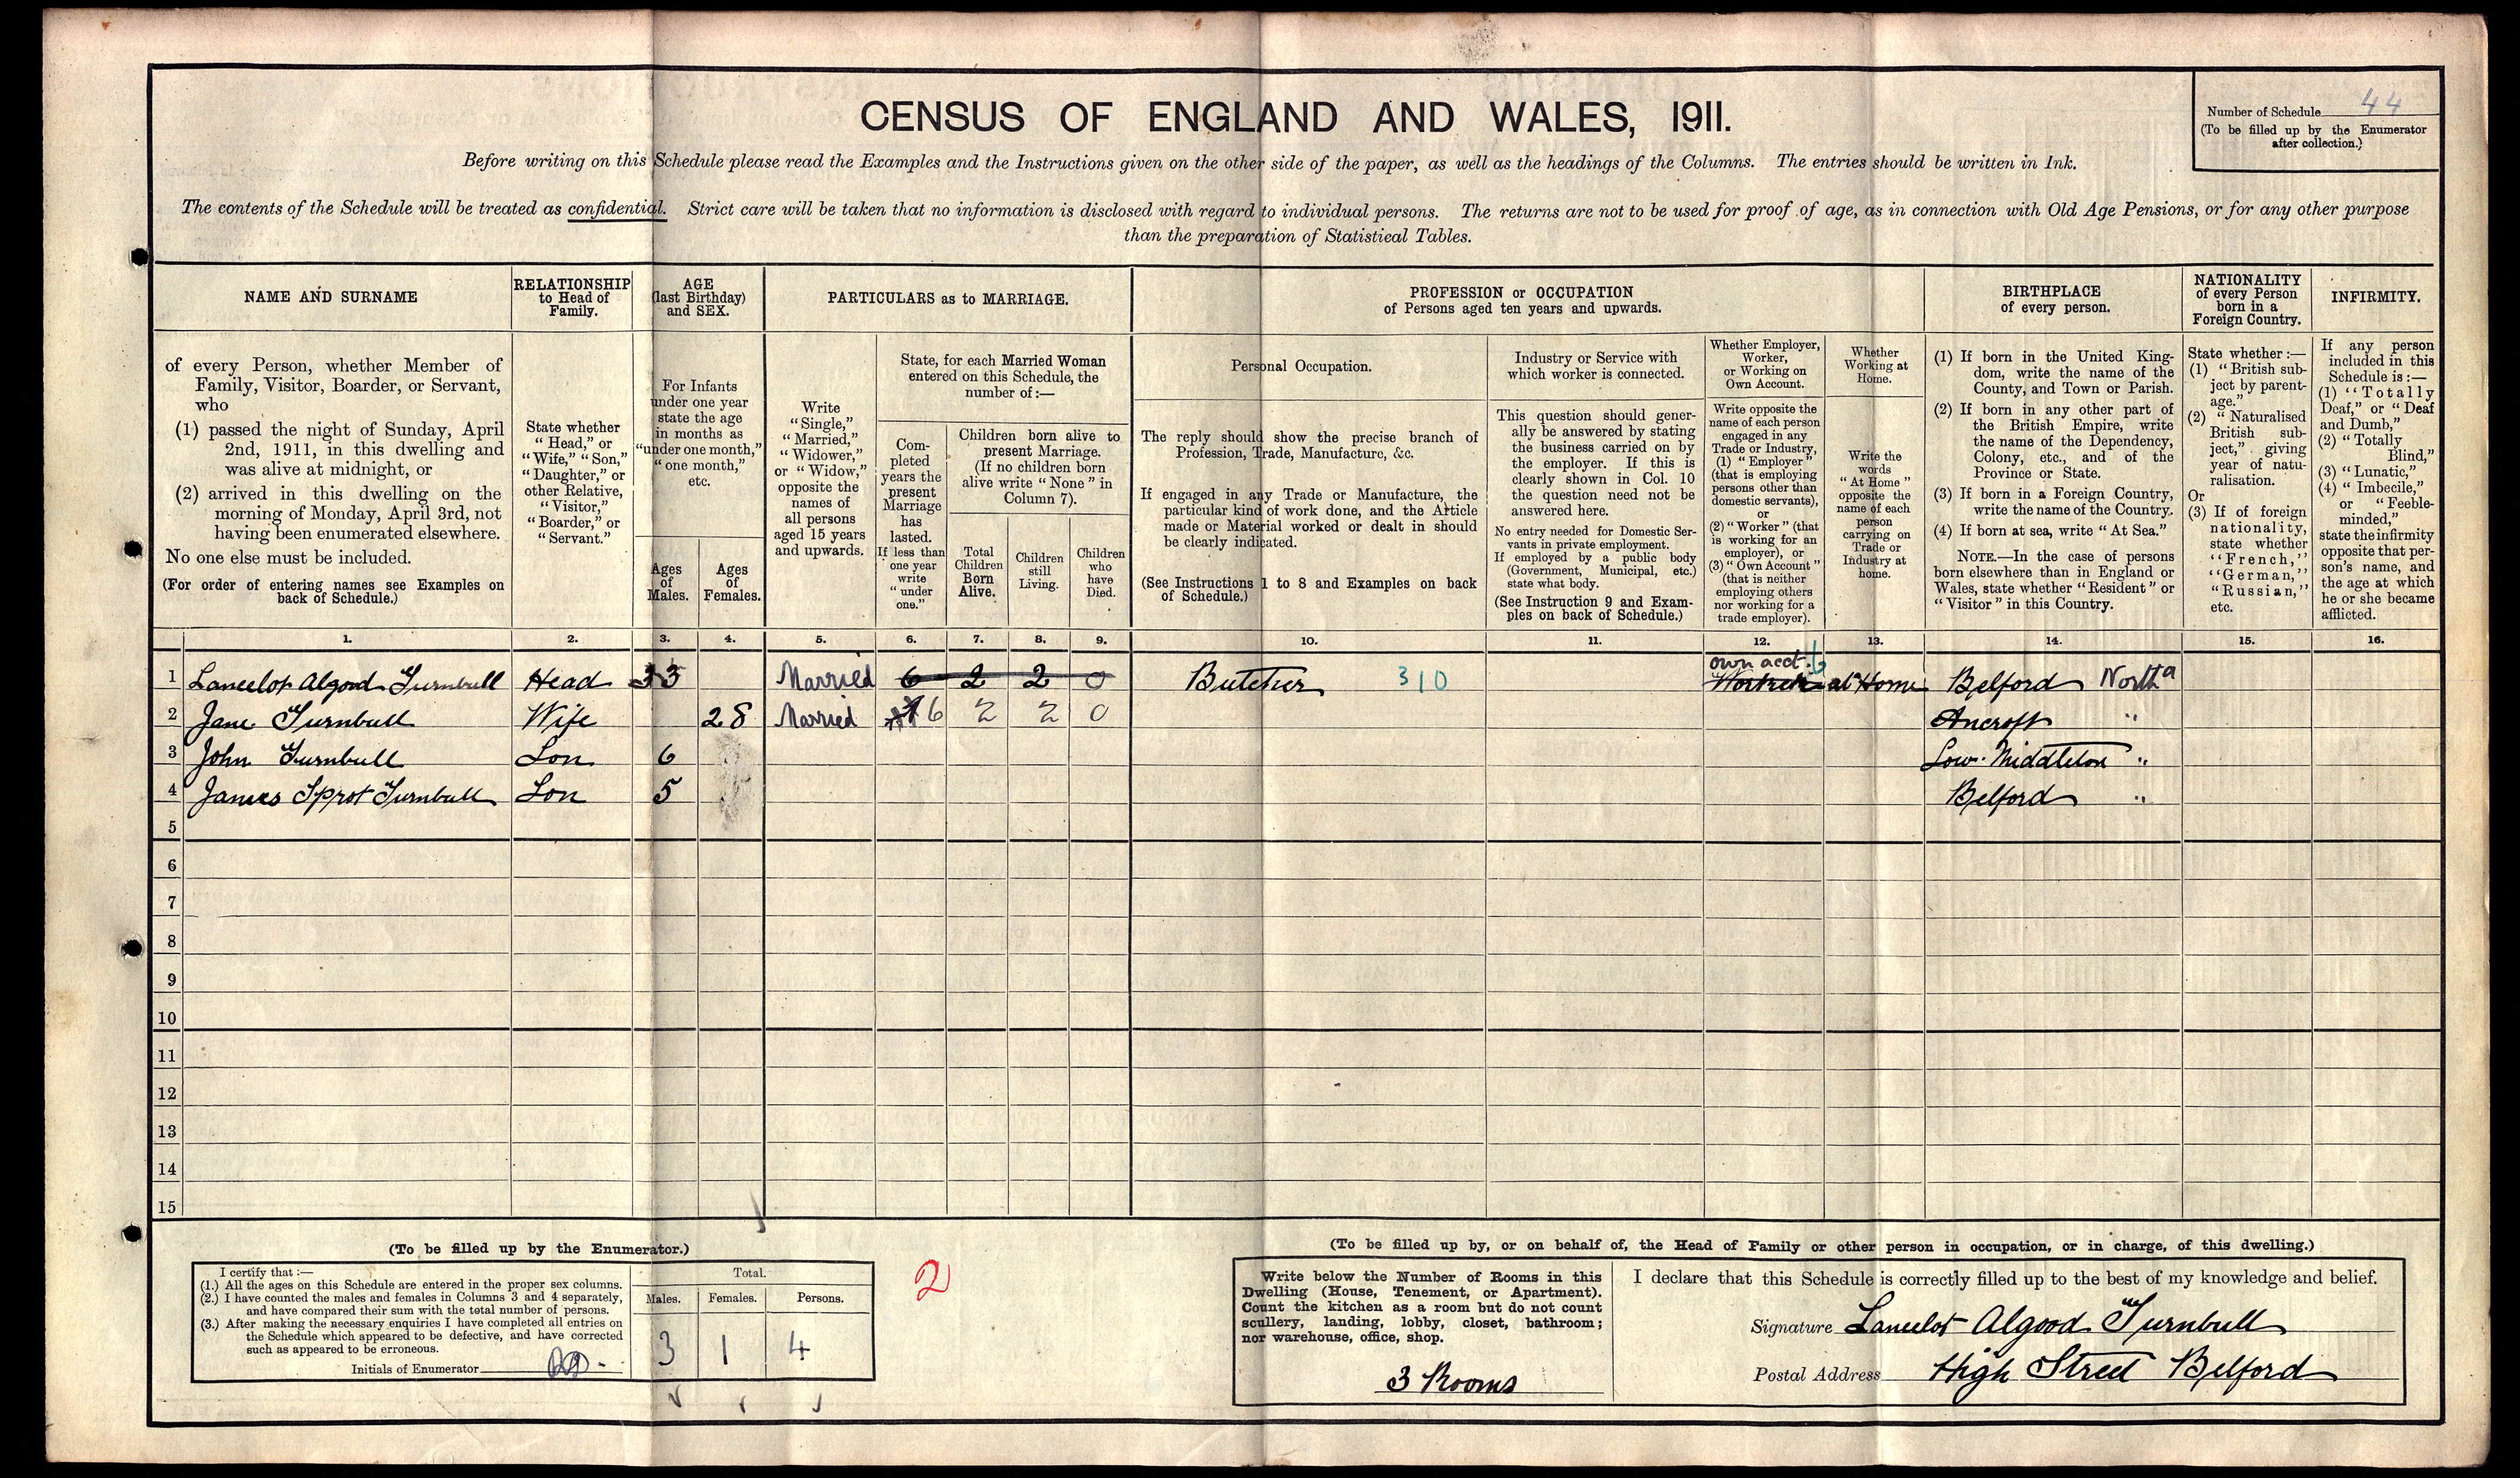 CENSUS OF ENGLAND AND WALES, 1911.
Number of Schedule 44
(To be filled up by the Enumerator
after collection.)
Before writing on this Schedule please read the Examples and the Instructions given on the other side of the paper, as well as the headings of the Columns. The entries should be written in Ink.
The contents of the Schedule will be treated as confidential. Strict care will be taken that no information is disclosed with regard to individual persons. The returns are not to be used for proof of age, as in connection with Old Age Pensions, or for any other purpose
than the preparation of Statistical Tables.
NAME AND SURNAME
of every Person, whether Member of
Family, Visitor, Boarder, or Servant,
who
(1) passed the night of Sunday, April
2nd, 1911, in this dwelling and
was alive at midnight, or
(2) arrived in this dwelling on the
morning of Monday, April 3rd, not
having been enumerated elsewhere.
No one else must be included.
(For order of entering names see Examples on
back of Schedule.)
RELATIONSHIP
to Head of
Family.
State whether
"Head," or
"Wife," "Son,"
"Daughter," or
other Relative,
"Visitor,"
"Boarder," or
"Servant."
AGE
(last Birthday)
and SEX.
For Infants
under one year
state the age
in months as
"under one month,"
"one month,"
etc.
Ages
of
Males.
Ages
of
Females.
PARTICULARS as to MARRIAGE.
Write
"Single,"
"Married,"
"Widower,"
or "Widow,"
opposite the
names of
all persons
aged 15 years
and upwards.
State, for each Married Woman
entered on this Schedule, the
number of:—
Com-
pleted
years the
present
Marriage
has
lasted.
If less than
one year
write
"under
one."
Children born alive to
present Marriage.
(If no children born
alive write "None" in
Column 7).
Total
Children
Born
Alive.
Children
still
Living.
Children
who
have
Died.
PROFESSION or OCCUPATION
of Persons aged ten years and upwards.
Personal Occupation.
The reply should show the precise branch of
Profession, Trade, Manufacture, &c.
If engaged in any Trade or Manufacture, the
particular kind of work done, and the Article
made or Material worked or dealt in should
be clearly indicated.
(See Instructions 1 to 8 and Examples on back
of Schedule.)
Industry or Service with
which worker is connected.
This question should gener-
ally be answered by stating
the business carried on by
the employer. If this is
clearly shown in Col. 10
the question need not be
answered here.
No entry needed for Domestic Ser-
vants in private employment.
If employed by a public body
(Government, Municipal, etc.)
state what body.
(See Instruction 9 and Exam-
ples on back of Schedule.)
Whether Employer,
Worker,
or Working on
Own Account.
Write opposite the
name of each person
engaged in any
Trade or Industry,
(1) "Employer"
(that is employing
persons other than
domestic servants),
or
(2) "Worker" (that
is working for an
employer), or
(3) "Own Account"
(that is neither
employing others
nor working for a
trade employer).
Whether
Working at
Home.
Write the
words
"At Home"
opposite the
name of each
person
carrying on
Trade or
Industry at
home.
BIRTHPLACE
of every person.
(1) If born in the United King-
dom, write the name of the
County, and Town or Parish.
(2) If born in any other part of
the British Empire, write
the name of the Dependency,
Colony, etc., and of the
Province or State.
(3) If born in a Foreign Country,
write the name of the Country.
(4) If born at sea, write "At Sea."
NOTE.—In the case of persons
born elsewhere than in England or
Wales, state whether "Resident" or
"Visitor" in this Country.
NATIONALITY
of every Person
born in a
Foreign Country.
State whether:—
(1) "British sub-
ject by parent-
age."
(2) "Naturalised
British sub-
ject," giving
year of natu-
ralisation.
Or
(3) If of foreign
nationality,
state whether
"French,"
"German,"
"Russian,"
etc.
INFIRMITY.
If any person
included in this
Schedule is:—
(1) "Totally
Deaf," or "Deaf
and Dumb,"
(2) "Totally
Blind,"
(3) "Lunatic,"
(4) "Imbecile,"
or "Feeble-
minded,"
state the infirmity
opposite that per-
son's name, and
the age at which
he or she became
afflicted.
1. 2. 3. 4. 5. 6. 7. 8. 9. 10. 11. 12. 13. 14. 15. 16.
own acct. 6
1 Lancelot Algood Turnbull Head 33 Married 6 2 2 0 Butcher 310 Worker at Home Belford North'd
2 Jane Turnbull Wife 28 Married 6 2 2 0 Ancroft "
3 John Turnbull Son 6 Low Middleton "
4 James Sprot Turnbull Son 5 Belford "
5
6
7
8
9
10
11
12
13
14
15
(To be filled up by the Enumerator.)
I certify that:—
(1.) All the ages on this Schedule are entered in the proper sex columns.
(2.) I have counted the males and females in Columns 3 and 4 separately,
and have compared their sum with the total number of persons.
(3.) After making the necessary enquiries I have completed all entries on
the Schedule which appeared to be defective, and have corrected
such as appeared to be erroneous.
Initials of Enumerator
Total.
Males. Females. Persons.
3 1 4
2
(To be filled up by, or on behalf of, the Head of Family or other person in occupation, or in charge, of this dwelling.)
Write below the Number of Rooms in this
Dwelling (House, Tenement, or Apartment).
Count the kitchen as a room but do not count
scullery, landing, lobby, closet, bathroom;
nor warehouse, office, shop.
3 Rooms
I declare that this Schedule is correctly filled up to the best of my knowledge and belief.
Signature Lancelot Algood Turnbull
Postal Address High Street Belford